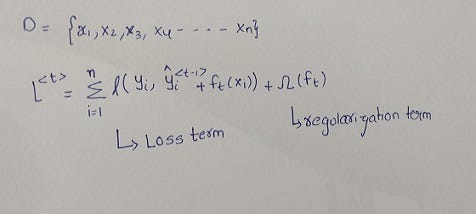 D = {x₁, x₂, x₃, x₄ - - - - xn}
L^<t> = n Σ i=1 l(yᵢ, ŷᵢ^<t-1> + fₜ(xᵢ)) + Ω(fₜ)
↳ Loss term ↳ regolarization term